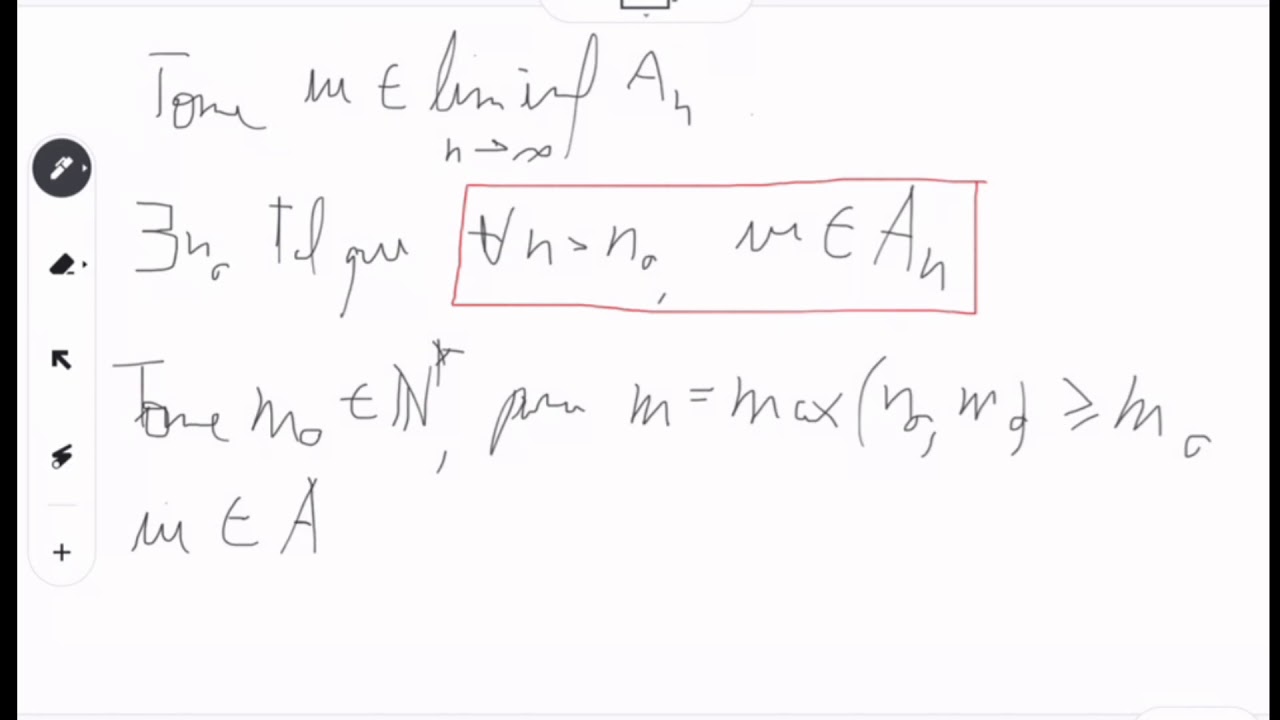 Tome w ∈ lim inf Aₙ
n→∞
∃n₀ tal que ∀n > n₀, w ∈ Aₙ
Tome m₀ ∈ ℕ*, para m = max(n₀, m₀) ≥ m₀
w ∈ A